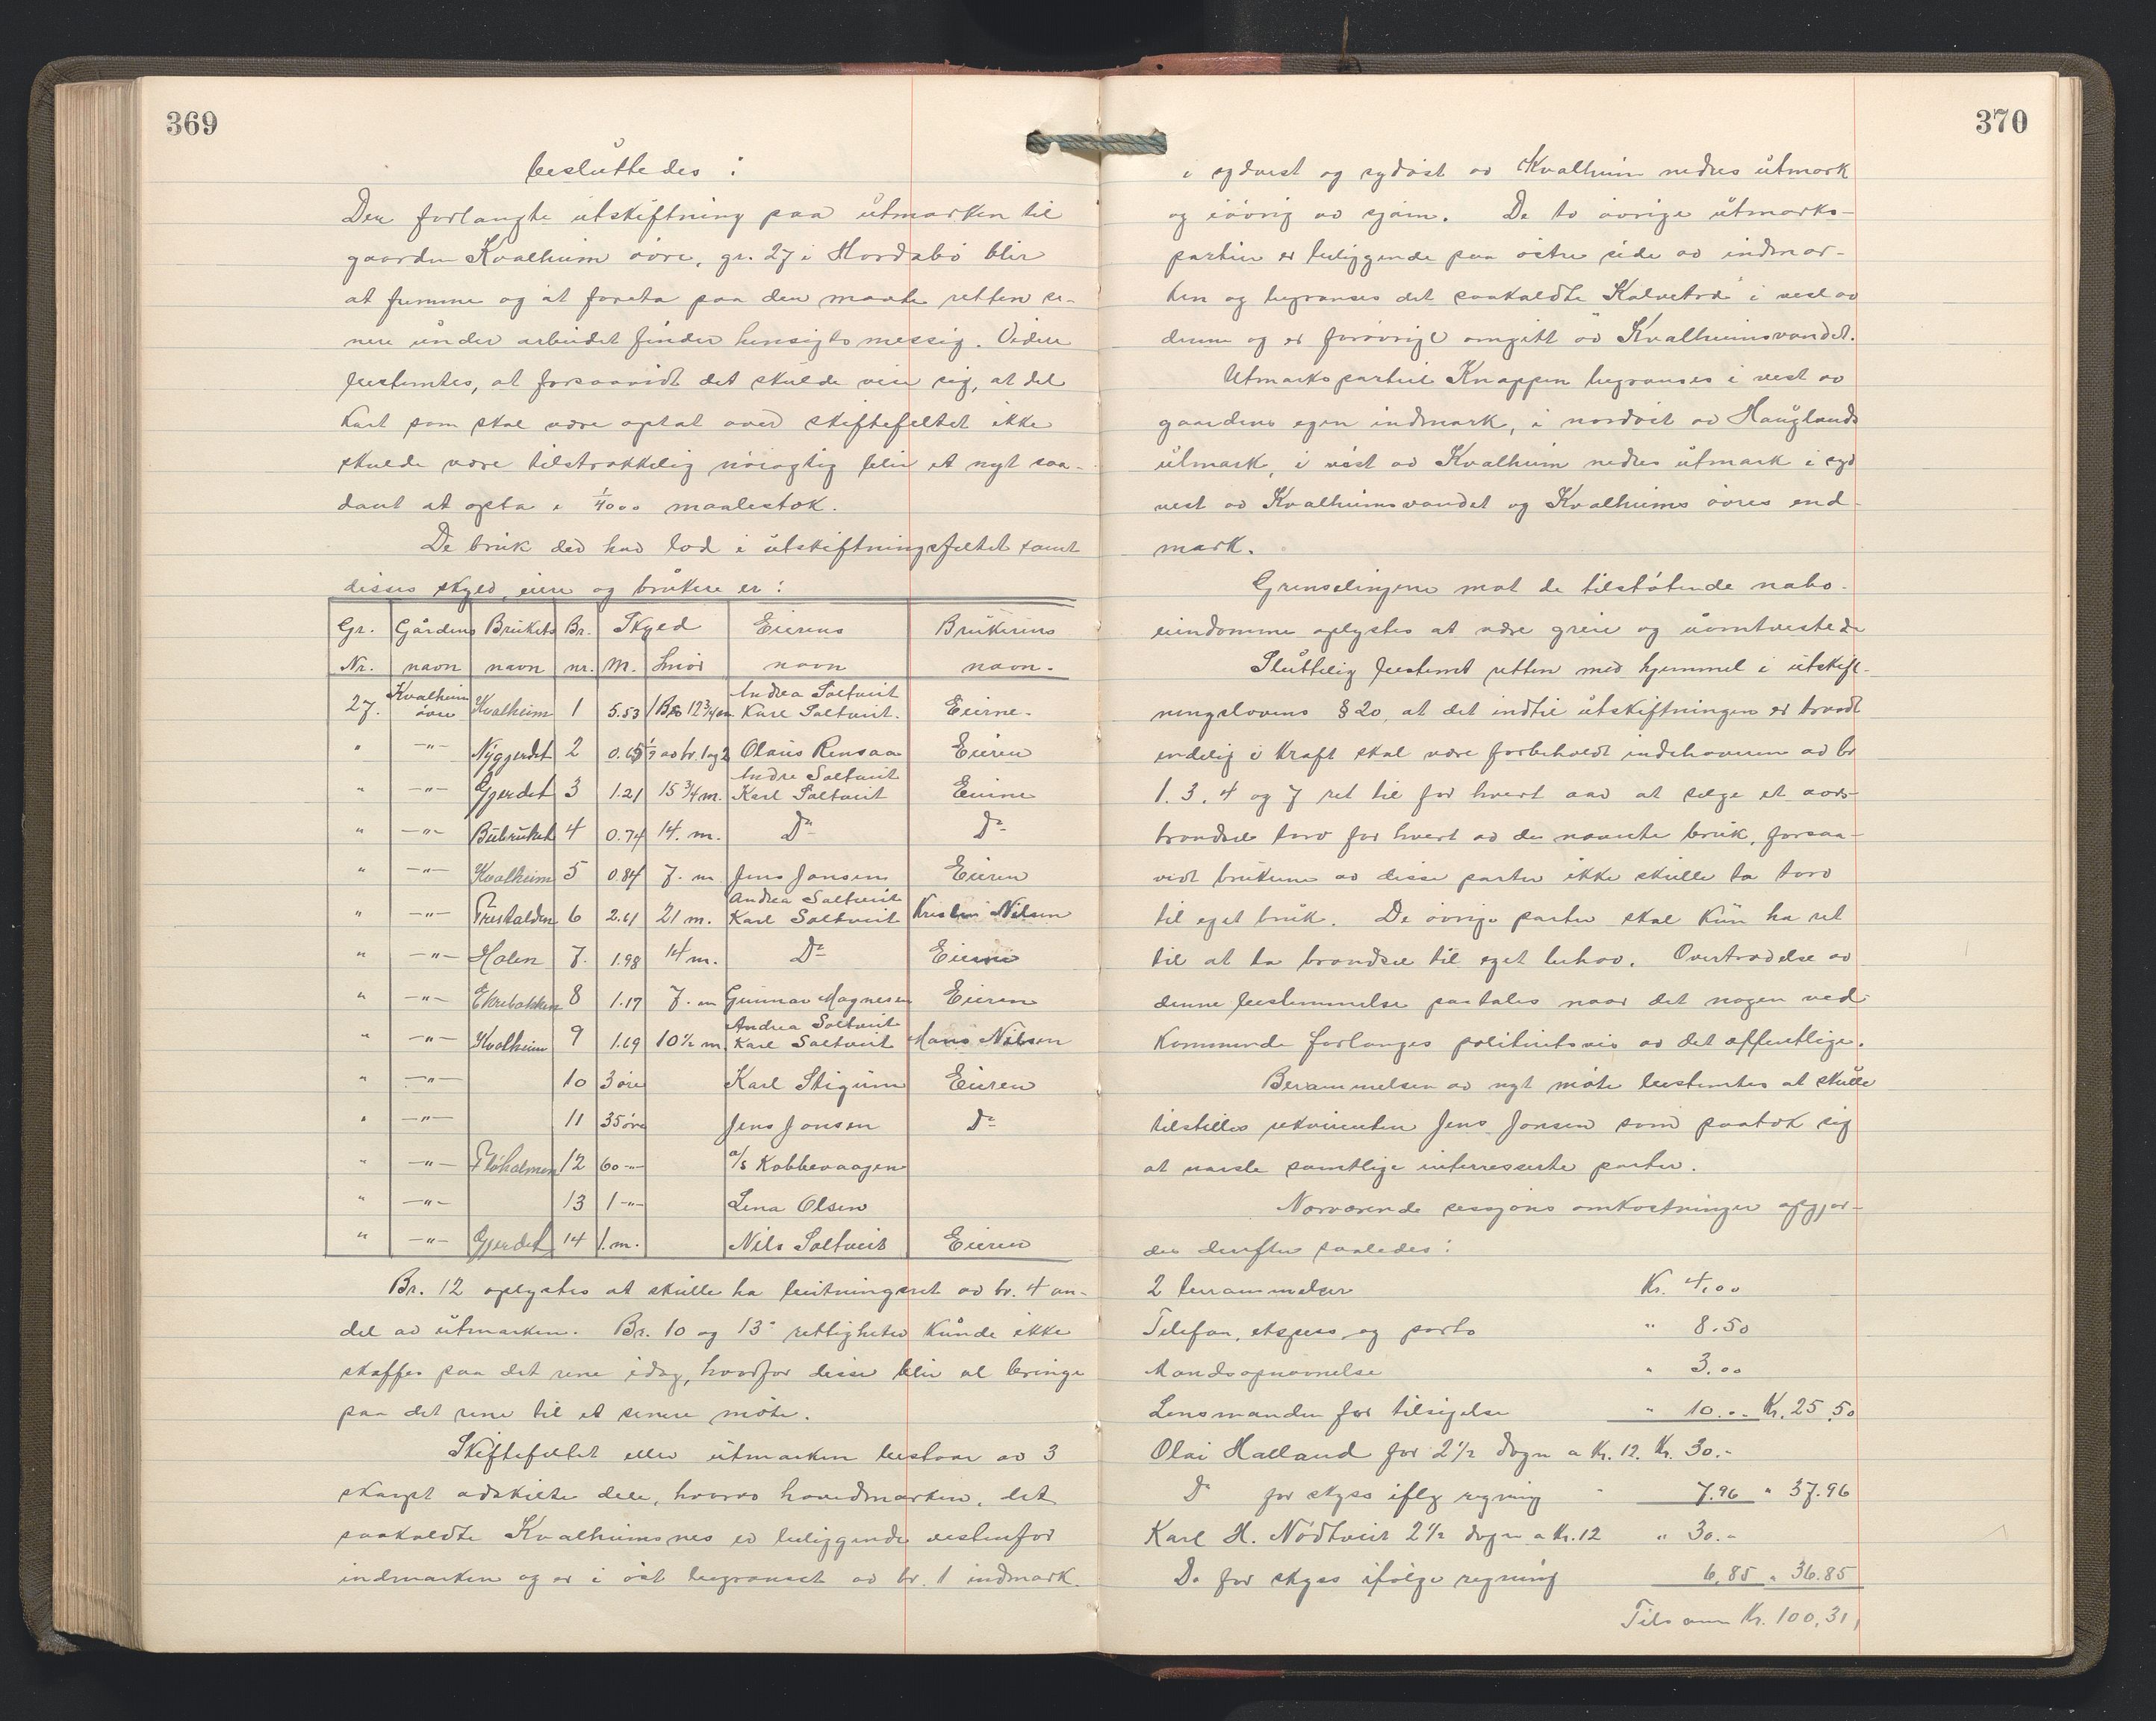 369
besluttedes:
Den forlangte utskiftning paa utmarken til
gaarden Kvalheim øvre, gr. 27 i Hordabø blir
at fremme og at foreta paa den maate retten se-
nere under arbeidet finder hensigtsmessig. Videre
bestemtes, at forsaavidt det skulde vise sig, at det
kart som skal være optat over skiftefeltet ikke
skulde være tilstrækkelig nøiagtig blir et nyt saa-
dant at opta i 1/1000 maalestok.
De bruk der har lod i utskiftningsfeltet samt
disses skyld, eiere og brukere er:
Gr. Gårdens Brukets Br. Skyld Eierens Brukerens
Nr. navn navn nr. M. Smør navn navn.
27. Kvalheim øvre Kvalheim 1 5.53 1 Bp 12 3/4 m Andrea Saltveit Karl Saltveit. Eierne.
" -"- Nygjerdet 2 0.65 1/9 av br. 1 og 2 Olaus Rensaa Eieren
" -"- Gjerdet 3 1.21 15 3/4 m. Andre Saltveit Karl Saltveit Eierne
" -"- Bübruket 4 0.74 14. m. Do Do
" -"- Kvalheim 5 0.84 7. m Jens Jansen Eieren
" -"- Træskalden 6 2.61 21 m. Andrea Saltveit Karl Saltveit Kristen Nilsen
" -"- Holen 7. 1.98 14 m. Do Eierne
" -"- Ekrebakken 8 1.17 7. m Gunnar Magnesen Eieren
" -"- Kvalheim 9 1.69 10 1/2 m. Andrea Saltveit Karl Saltveit Hans Nilsen
" -"- 10 3 øre Karl Stigum Eieren
" -"- 11 35 øre Jens Jansen Do
" -"- Fløholmen 12 60 -"- a/s Kobbevaagen
" -"- 13 1 -"- Lena Olsen
" -"- Gjerdet 14 1. m. Nils Saltveit Eieren
Br. 12 oplystes at skulle ha beitningsret av br. 4 an-
del av utmarken. Br. 10 og 13s rettigheter kunde ikke
skaffes paa det rene idag, hvorfor disse blir at bringe
paa det rene til et senere møte.
Skiftefeltet eller utmarken bestaar av 3
skarpt adskilte dele, hvorav hovedmarken, det
saakaldte Kvalheimsnes er beliggende vestenfor
indmarken og er i øst begrænset av br. 1 indmark.
370
i sydvest og sydøst av Kvalheim nedres utmark
og iøvrig av sjøen. De to øvrige utmarks-
partier er beliggende paa østre side av indmar-
ken og begrænses det saakaldte "Kalvetræ" i vest av
denne og er forøvrigt omgitt av Kvalheimsvandet.
Utmarkspartiet Knappen begrænses i vest av
gaardens egen indmark, i nordøst av Hauglands
utmark, i øst av Kvalheim nedres utmark i syd
vest av Kvalheimsvandet og Kvalheims øvres end-
mark.
Grenselinjene mot de tilstøtende nabo-
eiendomme oplystes at være greie og uomtvistede
Sluttelig bestemt retten med hjemmel i utskift-
ningslovens § 20, at det indtil utskiftningen er traadt
endelig i kraft skal være forbeholdt indehaveren av br
1. 3. 4 og 7 ret til for hvert aar at sælge et aars-
brændsel torv for hvert av de nævnte bruk, forsaa-
vidt brukerne av disse parter ikke skulle ta torv
til eget bruk. De øvrige parter skal kun ha ret
til at ta brændsel til eget behov. Overtrædelse av
denne bestemmelse paatales naar det nogen ved-
kommende forlanges politiretsvis av det offentlige.
Berammelsen av nyt møte bestemtes at skulle
tilstilles rekvirenten Jens Jansen som paatok sig
at varsle samtlige interresserte parter.
Nærværende sessjons omkostninger opgjør-
des derefter saaledes:
2 berammelser Kr. 4,00
Telefon, ekspres og porto " 8.50
Mandsopnævnelse " 3.00
Lensmanden for tilsigelse " 10.- Kr. 25.50
Olai Halland for 2 1/2 døgn a Kr. 12. Kr. 30.-
Do for skyss iflg regning " 7.96 " 37.96
Karl H. Nødtveit 2 1/2 døgn a Kr. 12 " 30.-
Do for skyss ifølge regning 6.85 " 36.85
Tilsam Kr. 100,31